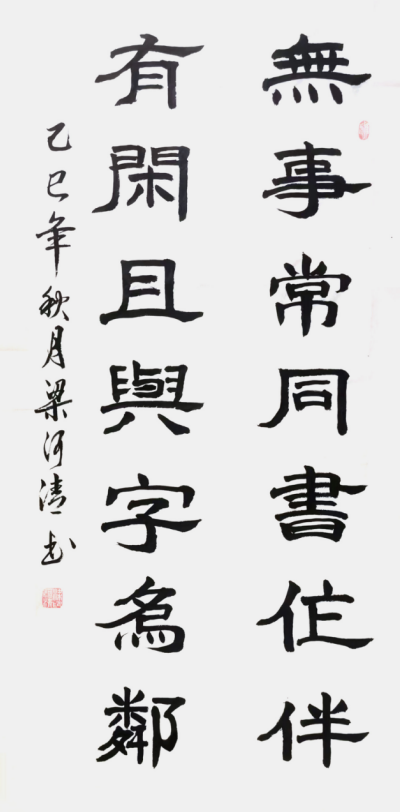 無事常同書作伴
有閑且與字為鄰
乙巳年秋月梁河清书